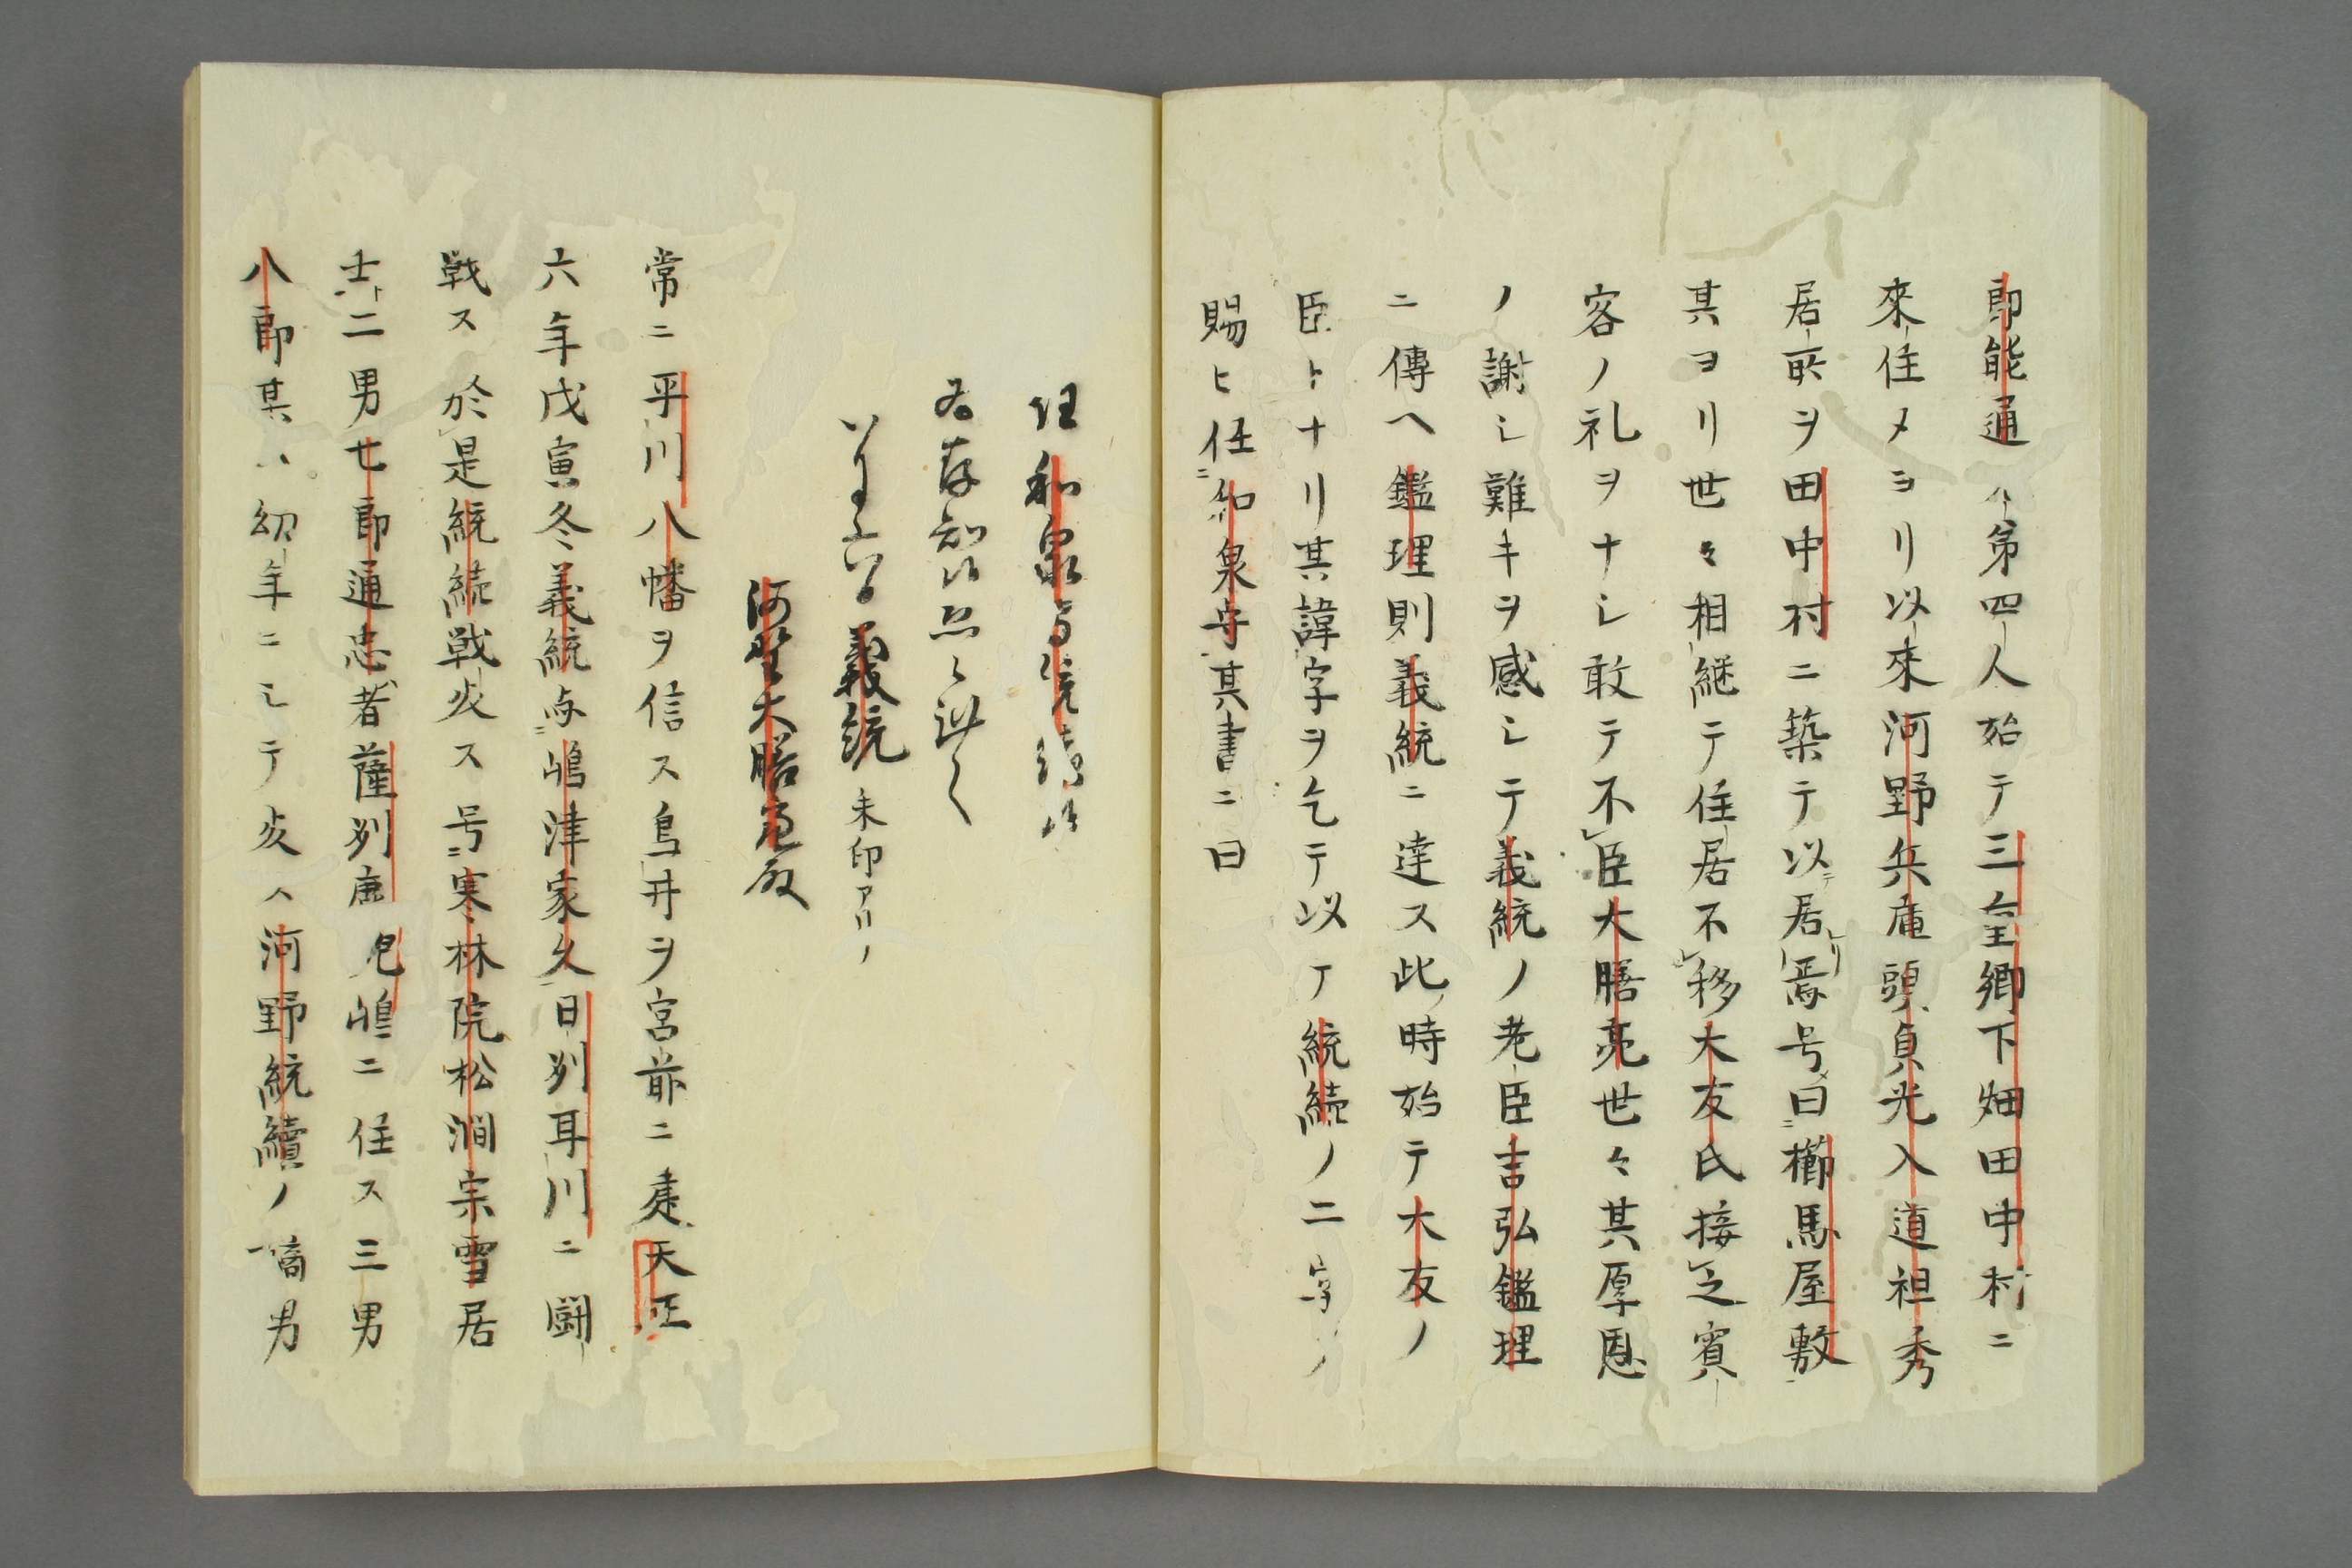 郎能通ハ第四人始テ三重郷下畑田中村ニ
來住メヨリ以來河野兵庫頭貞光入道祖秀
居所ヲ田中村ニ築テ以テ居レリ焉号曰櫛馬屋敷
其ヨリ世々相継テ住居不移大友氏接之賓
客ノ礼ヲナシ敢テ不臣大膳亮世々其厚恩
ノ謝シ難キヲ感シテ義統ノ老臣吉弘鑑理
ニ傳ヘ鑑理則義統ニ達ス此時始テ大友ノ
臣トナリ其諱字ヲ乞テ以テ統続ノ二字ノ
賜ヒ任ニ和泉守其書ニ曰
任和泉守統続候
為存知候恐々謹言
義統 朱印アリ
河野大膳亮殿
常ニ平川八幡ヲ信ス鳥井ヲ宮前ニ建天正
六年戊寅冬義統与嶋津家久日刕耳川ニ闘
戦ス於是統続戦死ス号寒林院松澗宗雪居
士ト二男七郎通忠者薩刕鹿児嶋ニ住ス三男
八郎某ハ幼年ニシテ死ス河野統續ノ嫡男